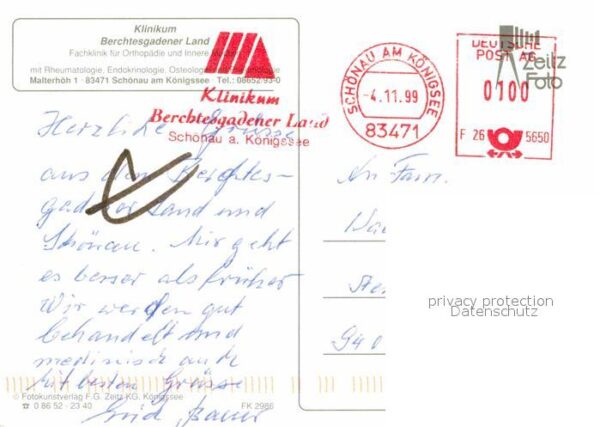 Klinikum
Berchtesgadener Land
Fachklinik für Orthopädie und Innere
mit Rheumatologie, Endokrinologie, Osteologie
Malterhöh 1 · 83471 Schönau am Königssee · Tel.: 08652/93-0
Klinikum
Berchtesgadener Land
Schönau a. Königssee
SCHÖNAU AM KÖNIGSEE
-4.11.99
83471
DEUTSCHE
POST AG
0100
F 26 5650
Zeitz
Foto
Herzliche Grüsse
aus dem Berchtes-
gadener Land und
Schönau. Mir geht
es besser als früher
Wir werden gut
behandelt und
medizinisch auch
Mit besten Grüsse
An Fam.
privacy protection
Datenschutz
© Fotokunstverlag F.G. Zeitz KG, Königssee
☎ 0 86 52 - 23 40
FK 2986